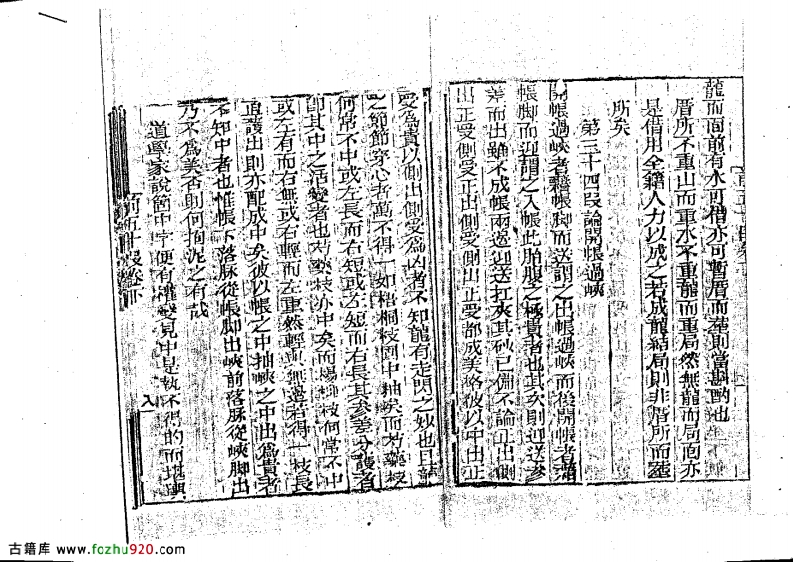 龍而面前有水可借亦可暫厝而塟則當斟酌也
厝所不重山而重水不重龍而重局然無龍而局面亦
是借用全籍人力以成之若成龍結局則非厝所而塟
所矣
第三十四叚論開帳過峽
開帳過峽者籍帳脚而送謂之出帳過峽而後開帳者藉
帳脚而迎謂之入帳此胎腹之極貴者也其次則迎送參
差而出雖不成帳兩邊迎送扛夾其砂已備不論正出側
出正受側受正出側受側出正受都成美格彼以中出正
受為貴以側出側受為凶者不知龍有走閃之妙也曰龍
之節節穿心者萬不得一如梧桐枝固中抽矣而芍藥枝
何常不中或左長而右短或左短而右長其參差分護者
即其中之活變者也芍藥枝亦中矣而楊柳枝何常不中
或左有而右無或右輕而左重然輕與無邊若得一枝長
直護出則亦配成中矣彼以帳之中抽峽之中出為貴者
不知中者也惟帳下落脉從帳脚出峽前落脉從峽脚出
乃不為美否則何拘泥之有哉
道學家說箇中字便有權變見中是執不得的而堪輿
前五十叚卷下
八
古籍库 www.fozhu920.com